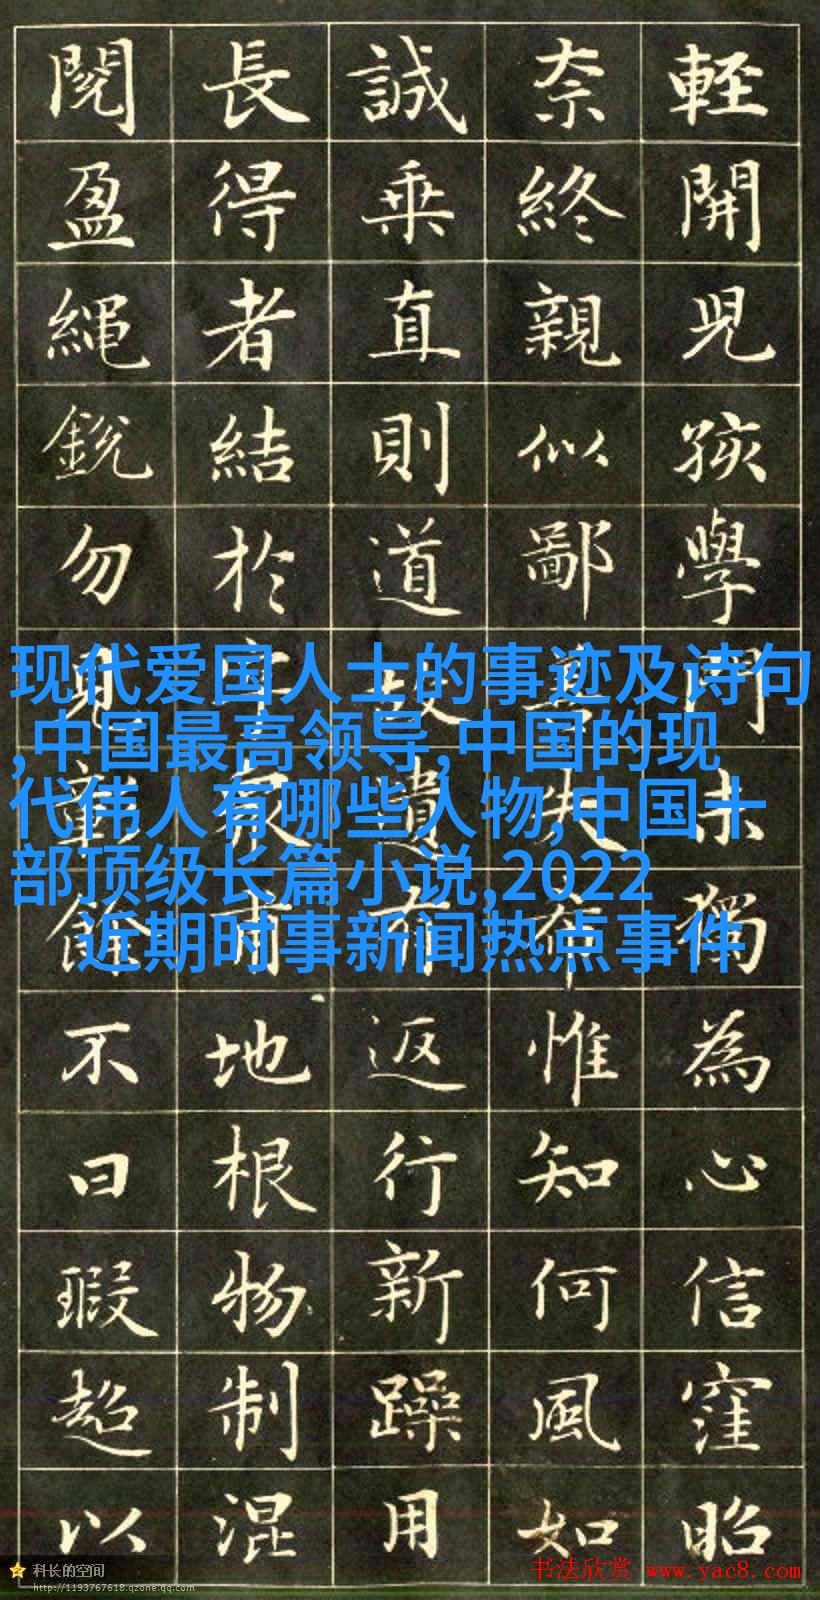 輕開兒孩學門未獨為心信窪昭
奈終親似鄙失惟知何風如
誠乘直則道故遺返行新躁用
長得者結於地根物制混
閱盈繩銳勿見餘不曰瑕超以
现代爱国人士的事迹及诗句
,中国最高领导,中国的现
代伟人有哪些人物,中国十
部顶级长篇小说,2022
近期时事新闻热点事件
科长的空间
http://1193767618.qzone.qq.com
书法欣赏 www.yac8.com